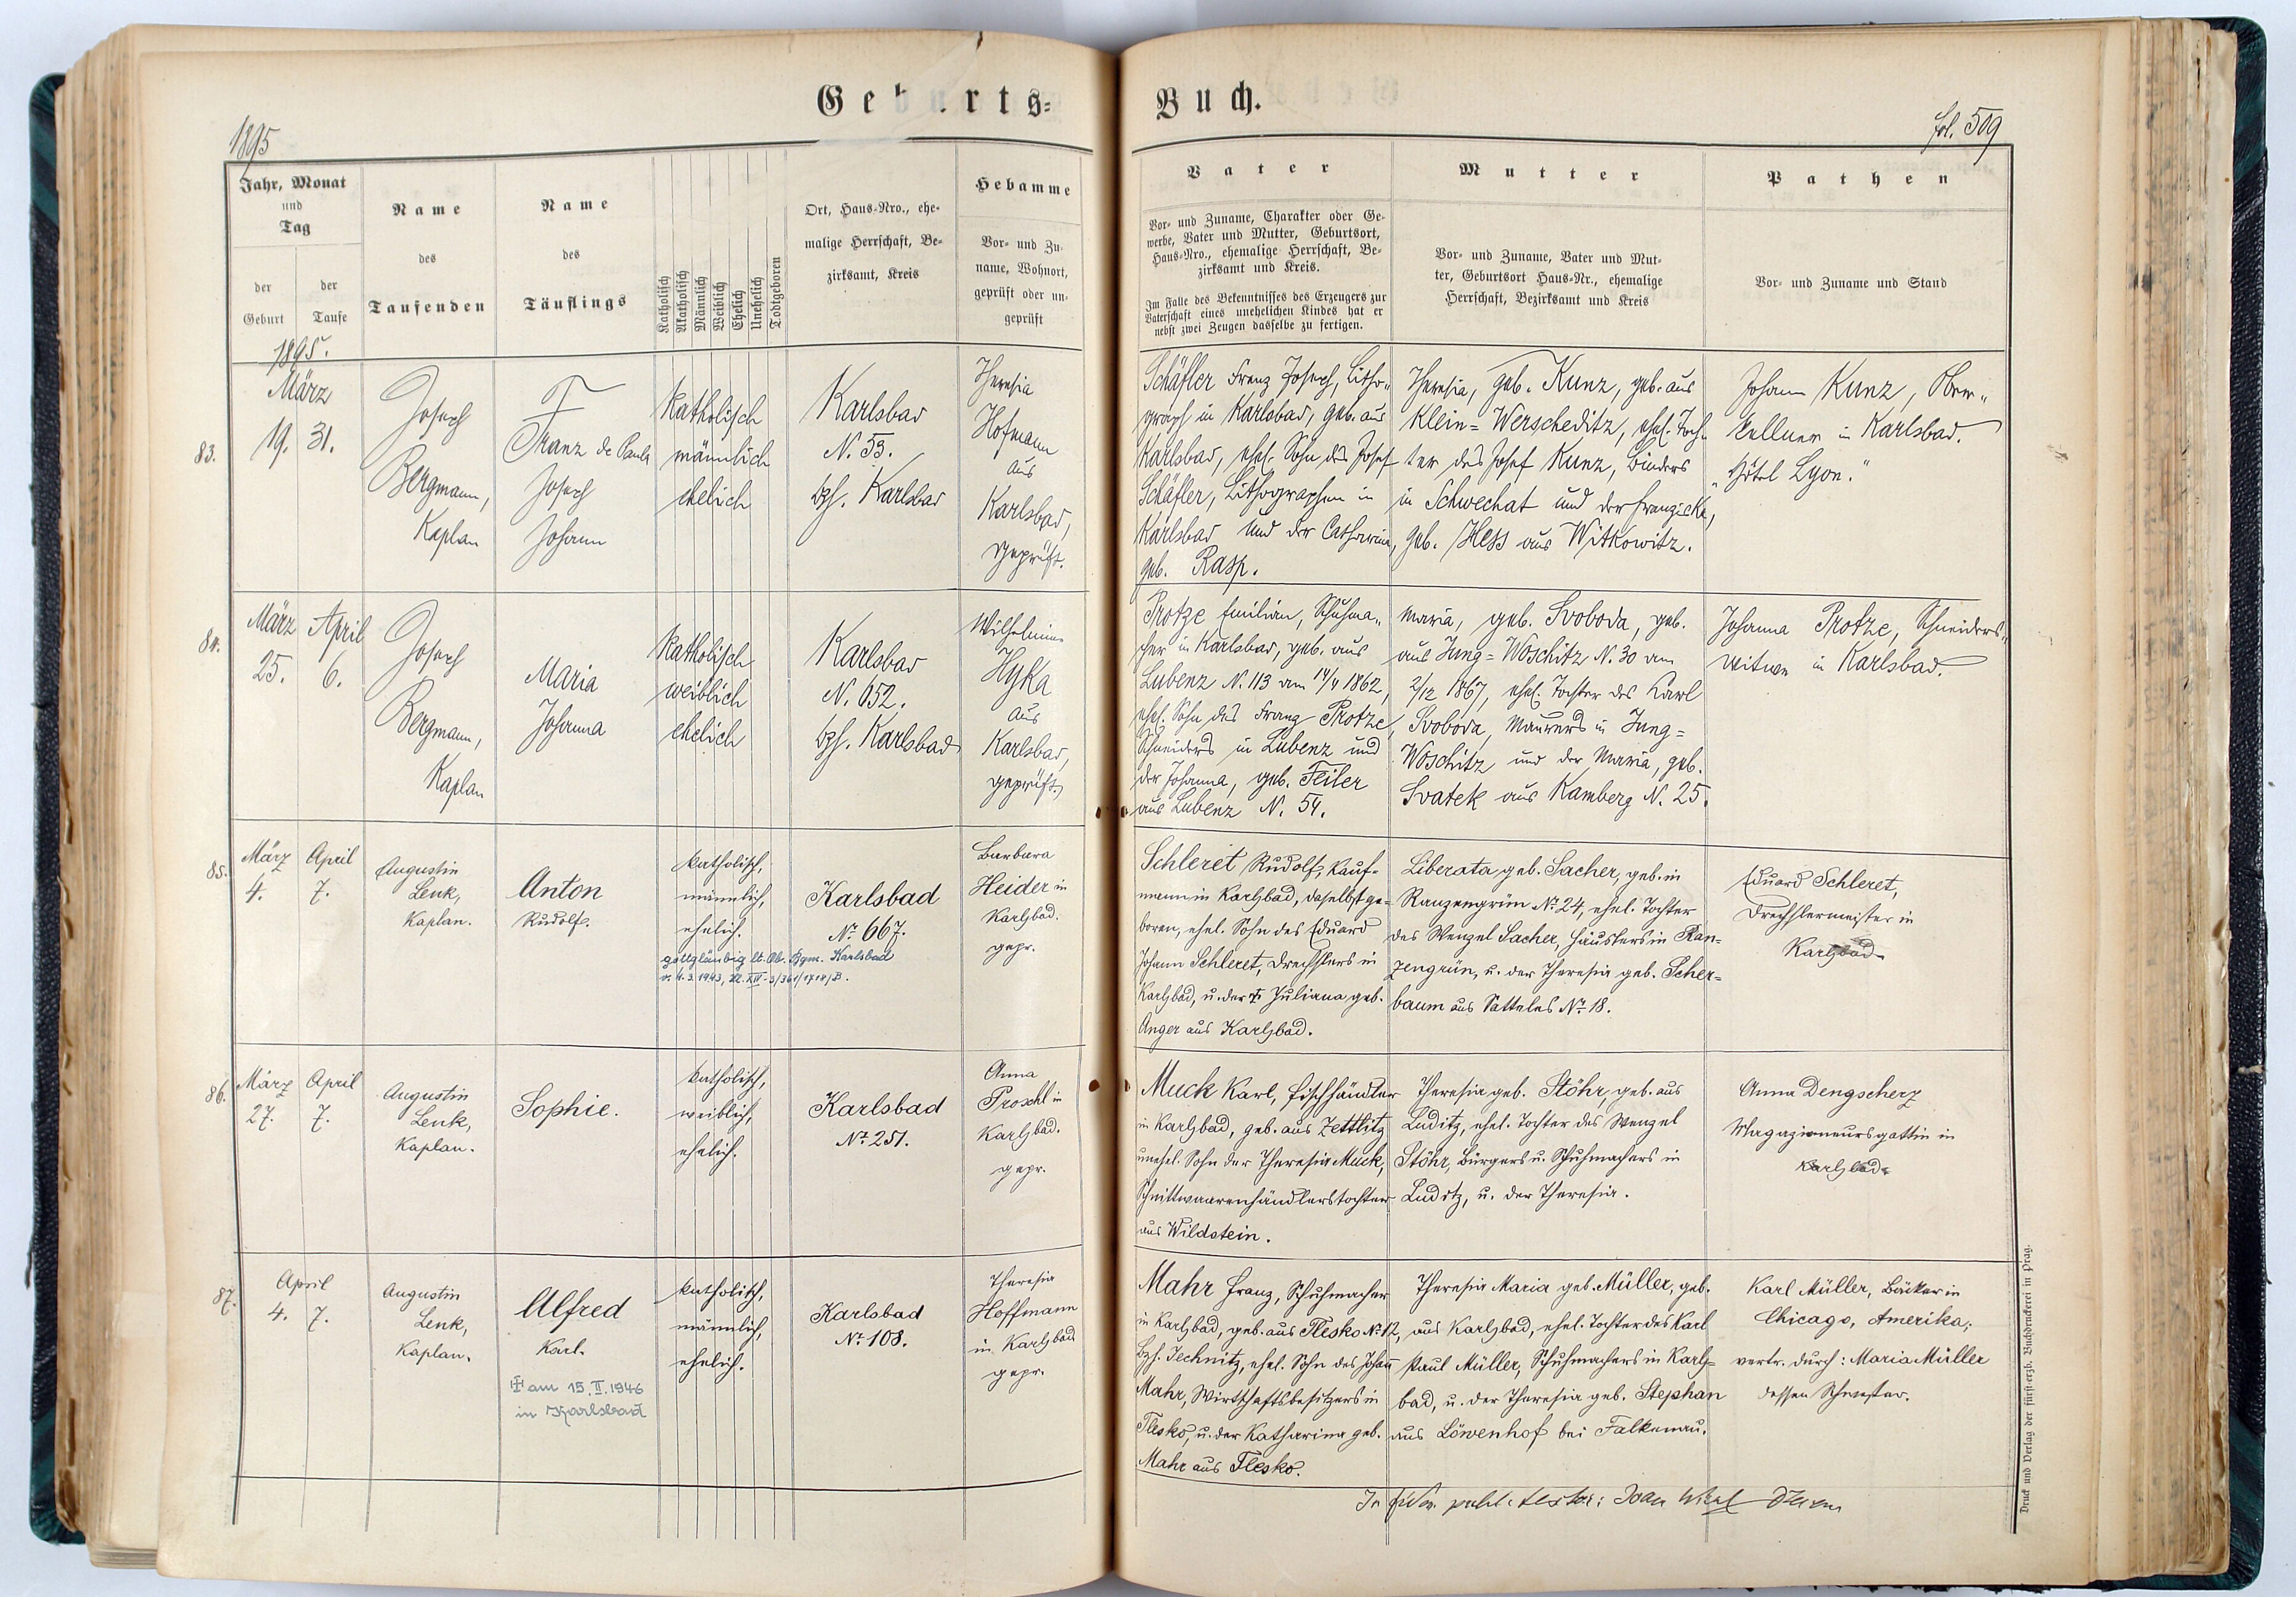 Geburts=
Buch.
1895
fol. 509
Jahr, Monat
und
Tag
der
Geburt
der
Taufe
Name
des
Taufenden
Name
des
Täuflings
Katholisch
Akatholisch
Männlich
Weiblich
Ehelich
Unehelich
Todtgeboren
Ort, Haus-Nro., ehe-
malige Herrschaft, Be-
zirksamt, Kreis
Hebamme
Vor- und Zu-
name, Wohnort,
geprüft oder un-
geprüft
Vater
Vor- und Zuname, Charakter oder Ge-
werbe, Vater und Mutter, Geburtsort,
Haus-Nro., ehemalige Herrschaft, Be-
zirksamt und Kreis.
Im Falle des Bekenntnisses des Erzeugers zur
Vaterschaft eines unehelichen Kindes hat er
nebst zwei Zeugen dasselbe zu fertigen.
Mutter
Vor- und Zuname, Vater und Mut-
ter, Geburtsort Haus-Nr., ehemalige
Herrschaft, Bezirksamt und Kreis
Pathen
Vor- und Zuname und Stand
1895.
83.
März
19. 31.
Joseph
Bergmann,
Kaplan
Franz de Paula
Joseph
Johann
katholisch
männlich
ehelich
Karlsbad
N. 53.
bzh. Karlsbad
Theresia
Hofmann
aus
Karlsbad,
geprüft.
Schäfler Franz Joseph, Litho-
graph in Karlsbad, geb. aus
Karlsbad, ehel. Sohn des Josef
Schäfler, Lithographen in
Karlsbad und der Catharina,
geb. Rasp.
Theresia, geb. Kunz, geb. aus
Klein-Werscheditz, ehel. Toch-
ter des Josef Kunz, Binders
in Schwechat und der Franziska,
geb. Hess aus Witkowitz.
Johann Kunz, Ober-
kellner in Karlsbad.
„Hôtel Lyon."
84.
März April
25. 6.
Joseph
Bergmann,
Kaplan
Maria
Johanna
katholisch
weiblich
ehelich
Karlsbad
N. 652.
bzh. Karlsbad
Wilhelmine
Hyka
aus
Karlsbad,
geprüft.
Protze Emilian, Schuhma-
cher in Karlsbad, geb. aus
Lubenz N. 113 am 14/4 1862,
ehel. Sohn des Franz Protze,
Schneiders in Lubenz und
der Johanna, geb. Feiler
aus Lubenz N. 54.
Maria, geb. Svoboda, geb.
aus Jung-Woschitz N. 30 am
2/12 1867, ehel. Tochter des Karl
Svoboda, Maurers in Jung-
Woschitz und der Maria, geb.
Svatek aus Kamberg N. 25.
Johanna Protze, Schneiders-
witwe in Karlsbad.
85.
März April
4. 7.
Augustin
Lenk,
Kaplan.
Anton
Rudolf.
katholisch,
männlich,
ehelich.
gottgläubig lt. Ob. Bgm. Karlsbad
v. 4.3.1943, Zl. XIV-3/361/1714/B.
Karlsbad
Nr. 667.
Barbara
Heider in
Karlsbad.
gepr.
Schleret Rudolf, Kauf-
mann in Karlsbad, daselbst ge-
boren, ehel. Sohn des Eduard
Johann Schleret, Drechslers in
Karlsbad, u. der ✝ Juliana geb.
Anger aus Karlsbad.
Liberata geb. Sacher, geb. in
Ranzengrün Nr. 24, ehel. Tochter
des Wenzel Sacher, Häuslers in Ran-
zengrün, u. der Theresia geb. Scher-
baum aus Satteles Nr. 18.
Eduard Schleret,
Drechslermeister in
Karlsbad.
86.
März April
27. 7.
Augustin
Lenk,
Kaplan.
Sophie.
katholisch,
weiblich,
ehelich.
Karlsbad
Nr. 251.
Anna
Proschl in
Karlsbad.
gepr.
Muck Karl, Fischhändler
in Karlsbad, geb. aus Zettlitz
unehel. Sohn der Theresia Muck,
Schnittwaarenhändlerstochter
aus Wildstein.
Theresia geb. Stöhr, geb. aus
Luditz, ehel. Tochter des Wenzel
Stöhr, Bürgers u. Schuhmachers in
Luditz, u. der Theresia.
Anna Dengscherz
Magazineursgattin in
Karlsbad.
87.
April
4. 7.
Augustin
Lenk,
Kaplan.
Alfred
Karl.
✝ am 15.II.1946
in Karlsbad
katholisch,
männlich,
ehelich.
Karlsbad
Nr. 108.
Theresia
Hoffmann
in Karlsbad
gepr.
Mahr Franz, Schuhmacher
in Karlsbad, geb. aus Flesko Nr. 12,
bzh. Jechnitz, ehel. Sohn des Johann
Mahr, Wirtschaftsbesitzers in
Flesko, u. der Katharina geb.
Mahr aus Flesko.
Theresia Maria geb. Müller, geb.
aus Karlsbad, ehel. Tochter des Karl
Paul Müller, Schuhmachers in Karls-
bad, u. der Theresia geb. Stephan
aus Löwenhof bei Falkenau.
Karl Müller, Bäcker in
Chicago, Amerika;
vertr. durch: Maria Müller
dessen Schwester.
Druck und Verlag der fürst-erzb. Buchdruckerei in Prag.